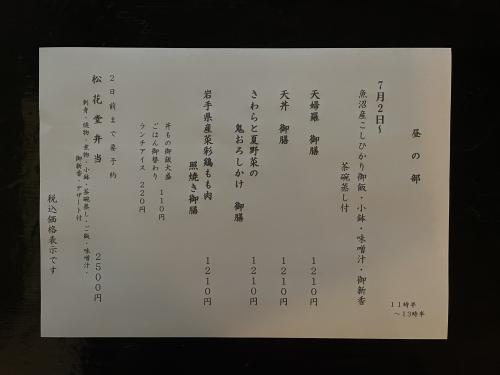 昼の部
11時半
～13時半
7月2日～
魚沼産こしひかり御飯・小鉢・味噌汁・御新香
茶碗蒸し付
天婦羅 御膳 1210円
天丼 御膳 1210円
さわらと夏野菜の
鬼おろしかけ 御膳 1210円
岩手県産菜彩鶏もも肉
照焼き御膳 1210円
丼もの御飯大盛
ごはん御替わり 110円
ランチアイス 220円
2日前まで要予約
松花堂弁当 2500円
刺身・焼物・煮物・小鉢・茶碗蒸し・ご飯・味噌汁・
御新香・デザート付
税込価格表示です